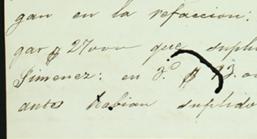 gan en la refaccion:
gar $ 27000 que suplio
Jimenez: en d.o $ 93. on
ante habian suplido